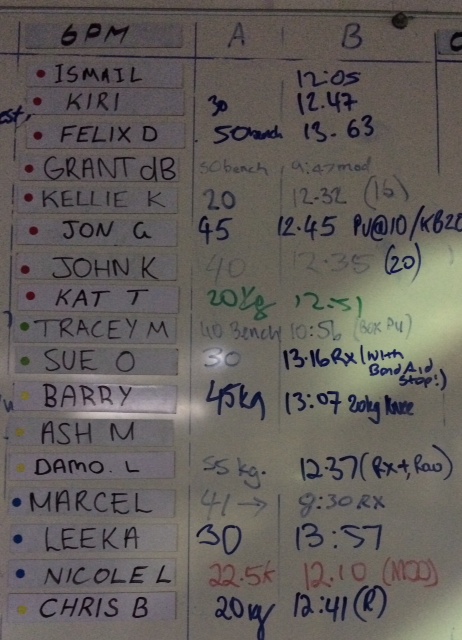 6PM A B
ISMAIL 12:05
KIRI 30 12.47
FELIX D 50bench 13.63
GRANT dB 50bench 9:47mod
KELLIE K 20 12.32 (16)
JON G 45 12.45 PU@10/KB20
JOHN K 40 12:35 (20)
KAT T 20kg 12:51
TRACEY M 40 Bench 10:56 (Box PU)
SUE O 30 13.16Rx (with
Band Aid
Stop!)
BARRY 45kg 13:07 20kg Knee
ASH M
DAMO. L 55 kg. 12:37 (Rx+, Rao)
MARCEL 41 → 9:30 RX
LEEKA 30 13:57
NICOLE L 22.5k 12.10 (MOD)
CHRIS B 20kg 12:41 (R)